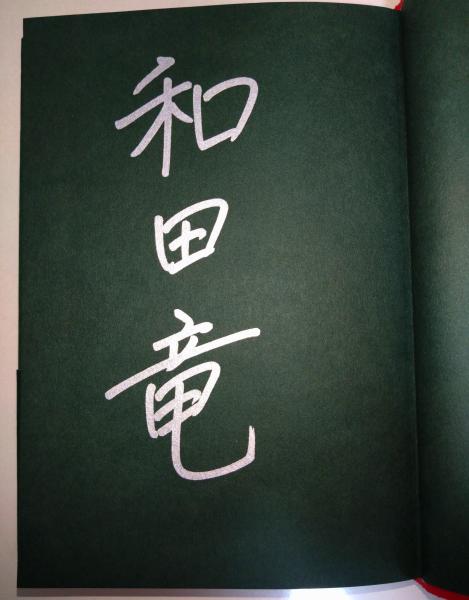 和田竜